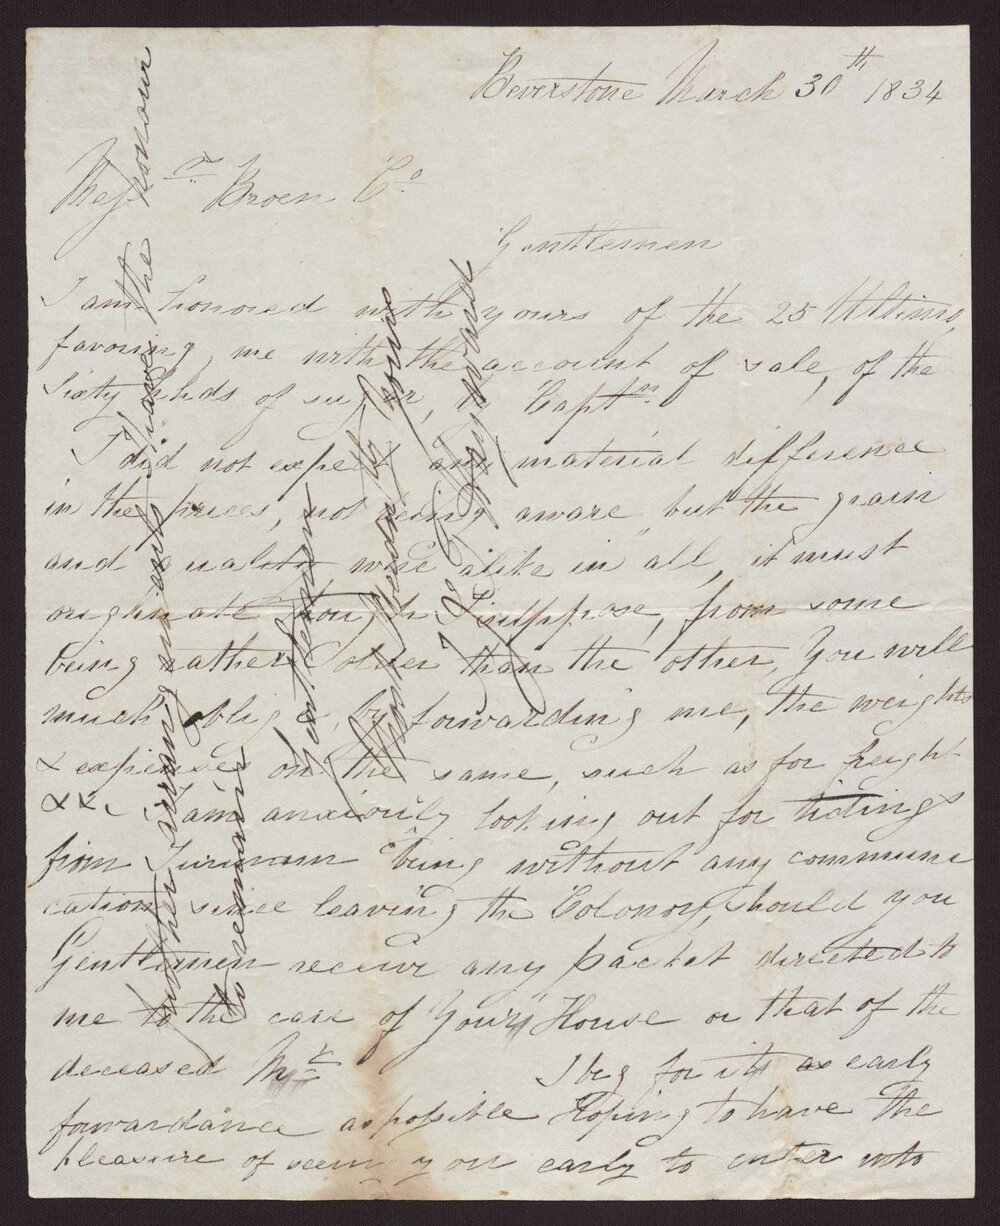 Beverstone March 30th 1834
Messrs Broen Co
Gentlemen
I am honored with yours of the 25 Ultimo,
favoring me with the account of sale, of the
Sixty hhds of sugar, Captn
I did not expect any material difference
in the prices, not being aware but the grain
and quality were alike in all, it must
originate though I suppose, from some
being rather older than the other, You will
much oblige, by forwarding me, the weights
& expenses on the same, such as for freight
&&. I am anxiously looking out for tidings
from Surinam being without any commune
cation since leaving the Colonoy, should you
Gentlemen receive any packet directed to
me to the care of Your House or that of the
deceased Mr I beg for its as early
forwardance as possible Hoping to have the
pleasure of seeing you early to enter into
further arrangements I have the honour
to remain
Gentlemen
Most Obedntly Yours
Hayward